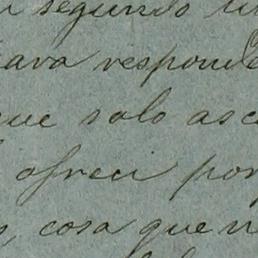 segundo
ava responde
que solo asc
ofreci por
, cosa que n